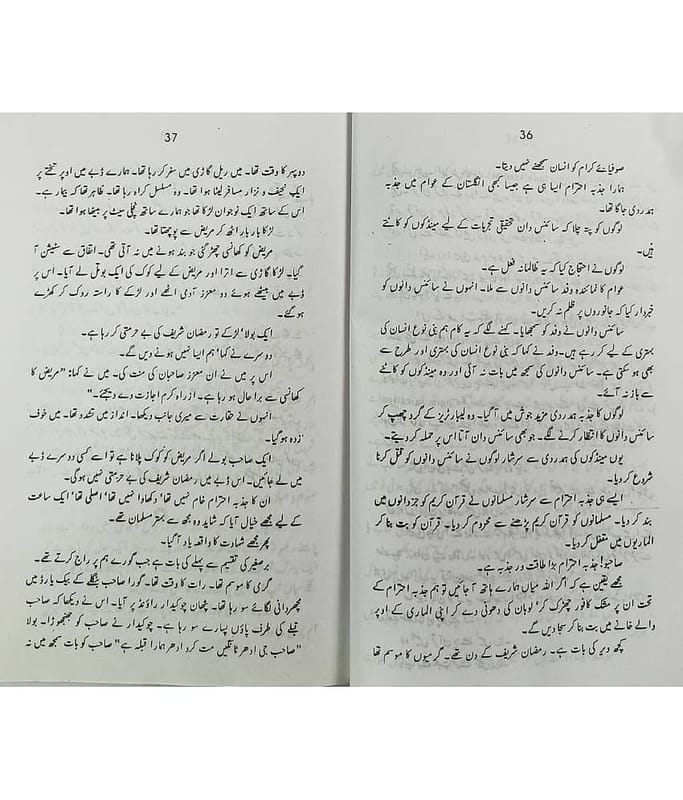 36
صوفیائے کرام کو انسان سمجھنے نہیں دیتا۔
ہمارا جذبہ احترام ایسا ہی ہے جیسا کبھی انگلستان کے عوام میں جذبہ
ہمدردی جاگا تھا۔
لوگوں کو پتہ چلا کہ سائنس دان تحقیقی تجربات کے لیے مینڈکوں کو کاٹتے
ہیں۔
لوگوں نے احتجاج کیا کہ یہ ظالمانہ فعل ہے۔
عوام کا نمائندہ وفد سائنس دانوں سے ملا۔ انہوں نے سائنس دانوں کو
خبردار کیا کہ جانوروں پر ظلم نہ کریں۔
سائنس دانوں نے وفد کو سمجھایا۔ کہنے لگے کہ یہ کام ہم بنی نوع انسان کی
بہتری کے لیے کر رہے ہیں۔ وفد نے کہا کہ بنی نوع انسان کی بہتری اور طرح سے
بھی ہو سکتی ہے۔ سائنس دانوں کی سمجھ میں بات نہ آئی اور وہ مینڈکوں کو کاٹنے
سے باز نہ آئے۔
لوگوں کا جذبہ ہمدردی مزید جوش میں آگیا۔ وہ لیبارٹریز کے گرد چھپ کر
سائنس دانوں کا انتظار کرنے لگے۔ جو بھی سائنس دان آتا اس پر حملہ کر دیتے۔
یوں مینڈکوں کی ہمدردی سے سرشار لوگوں نے سائنس دانوں کو قتل کرنا
شروع کر دیا۔
ایسے ہی جذبہ احترام سے سرشار مسلمانوں نے قرآن کریم کو جزدانوں میں
بند کر دیا۔ مسلمانوں کو قرآن کریم پڑھنے سے محروم کر دیا۔ قرآن کو بت بنا کر
الماریوں میں مقفل کر دیا۔
صاحبو! جذبہ احترام بڑا طاقت ور جذبہ ہے۔
مجھے یقین ہے کہ اگر اللہ میاں ہمارے ہاتھ آ جائیں تو ہم جذبہ احترام کے
تحت ان پر مشک کافور چھڑک کر' لوبان کی دھونی دے کر اپنی الماری کے اوپر
والے خانے میں بت بنا کر سجا دیں گے۔
کچھ دیر کی بات ہے۔ رمضان شریف کے دن تھے۔ گرمیوں کا موسم تھا
37
دوپہر کا وقت تھا۔ میں ریل گاڑی میں سفر کر رہا تھا۔ ہمارے ڈبے میں اوپر تختے پر
ایک نحیف و نزار مسافر لیٹا ہوا تھا۔ وہ مسلسل کراہ رہا تھا۔ ظاہر تھا کہ بیمار ہے۔
اس کے ساتھ ایک نوجوان لڑکا تھا جو ہمارے ساتھ نچلی سیٹ پر بیٹھا ہوا تھا۔
لڑکا بار بار اٹھ کر مریض سے پوچھتا تھا۔
مریض کو کھانسی چھڑ گئی جو بند ہونے میں نہ آتی تھی۔ اتفاق سے سٹیشن آ
گیا۔ لڑکا گاڑی سے اترا اور مریض کے لیے کوک کی ایک بوتل لے آیا۔ اس پر
ڈبے میں بیٹھے ہوئے دو معزز آدمی اٹھے اور لڑکے کا راستہ روک کر کھڑے
ہو گئے۔
ایک بولا' لڑکے تو رمضان شریف کی بے حرمتی کر رہا ہے۔
دوسرے نے کہا' ہم ایسا نہیں ہونے دیں گے۔
اس پر میں نے ان معزز صاحبان کی منت کی۔ میں نے کہا: "مریض کا
کھانسی سے برا حال ہو رہا ہے۔ از راہ کرم اجازت دے دیجئے۔"
انہوں نے حقارت سے میری جانب دیکھا۔ انداز میں تشدد تھا۔ میں خوف
زدہ ہو گیا۔
ایک صاحب بولے اگر مریض کو کوک پلانا ہے تو اسے کسی دوسرے ڈبے
میں لے جائیں۔ اس ڈبے میں رمضان شریف کی بے حرمتی نہیں ہوگی۔
ان کا جذبہ احترام خام نہیں تھا' دکھاوا نہیں تھا' اصلی تھا' ایک ساعت
کے لیے مجھے خیال آیا کہ شاید وہ مجھ سے بہتر مسلمان تھے۔
پھر مجھے شہادت کا واقعہ یاد آ گیا۔
برصغیر کی تقسیم سے پہلے کی بات ہے جب گورے ہم پر راج کرتے تھے۔
گرمی کا موسم تھا۔ رات کا وقت تھا۔ گورا صاحب بنگلے کے بیک یارڈ میں
مچھردانی لگائے سو رہا تھا۔ پٹھان چوکیدار راؤنڈ پر آیا۔ اس نے دیکھا کہ صاحب
قبلے کی طرف پاؤں پسارے سو رہا ہے۔ چوکیدار نے صاحب کو جھنجھوڑا۔ بولا
"صاحب جی ادھر ٹانگیں مت کرو ادھر ہمارا قبلہ ہے" صاحب کو بات سمجھ میں نہ